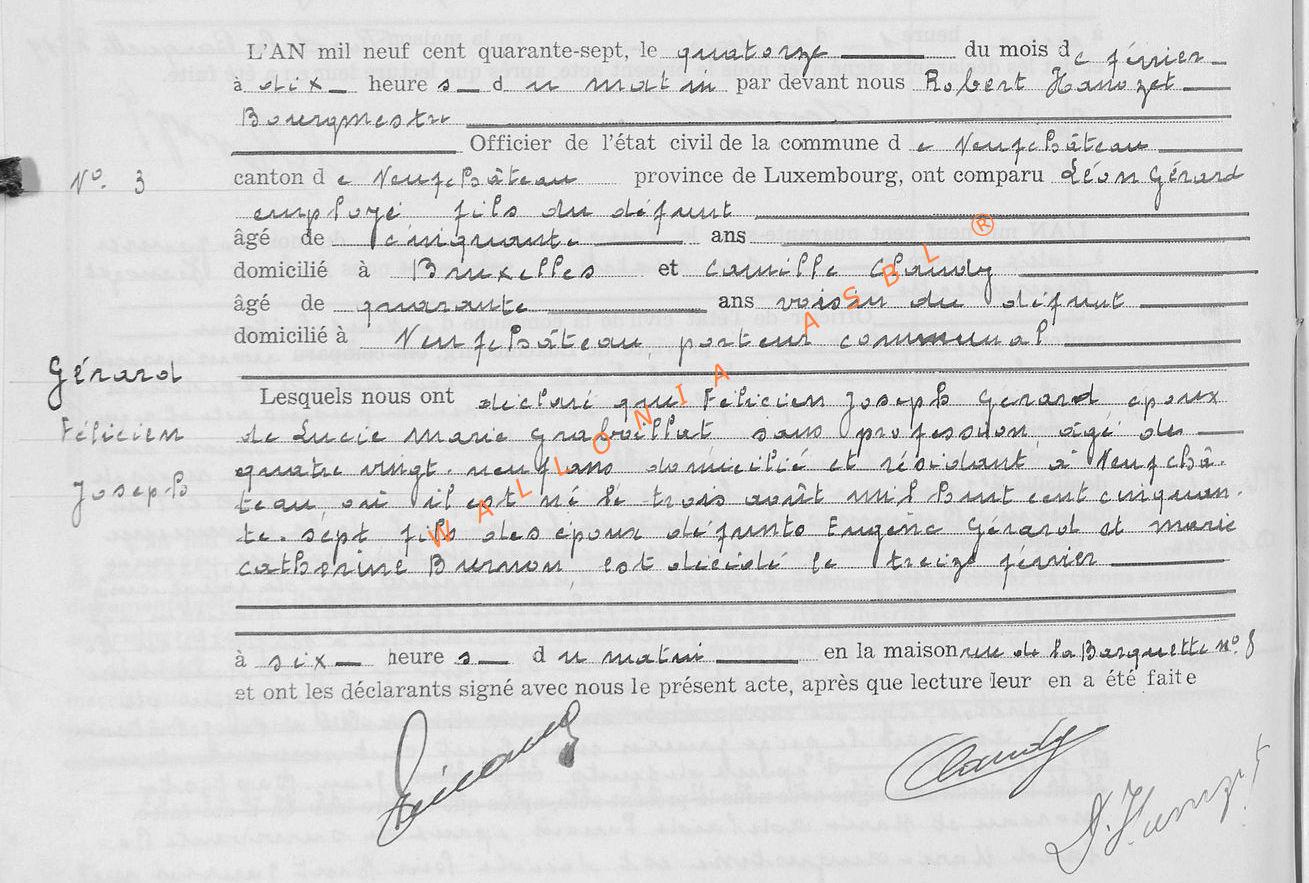 L'AN mil neuf cent quarante-sept, le quatorze du mois de février
à dix heures du matin par devant nous Robert Hanozet
Bourgmestre
Officier de l'état civil de la commune de Neufchâteau
N°. 3 canton de Neufchâteau province de Luxembourg, ont comparu Léon Gérard
employé fils du défunt
âgé de cinquante ans
domicilié à Bruxelles et Camille Claudy
âgé de quarante ans voisin du défunt
domicilié à Neufchâteau, porteur communal
Gérard
Félicien
Joseph
Lesquels nous ont déclaré que Félicien Joseph Gérard époux
de Lucie Marie sans profession, âgé de
quatre vingt-neuf ans domicilié et résidant à Neufchâ-
teau, où il est né le trois août mil huit cent cinquan-
te-sept fils des époux défunts Eugène Gérard et Marie
Catherine Burnon est décédé le treize février
à six heures du matin en la maison rue de la Barquette n° 8
et ont les déclarants signé avec nous le présent acte, après que lecture leur en a été faite
Claudy
WALLONIA ASBL ®